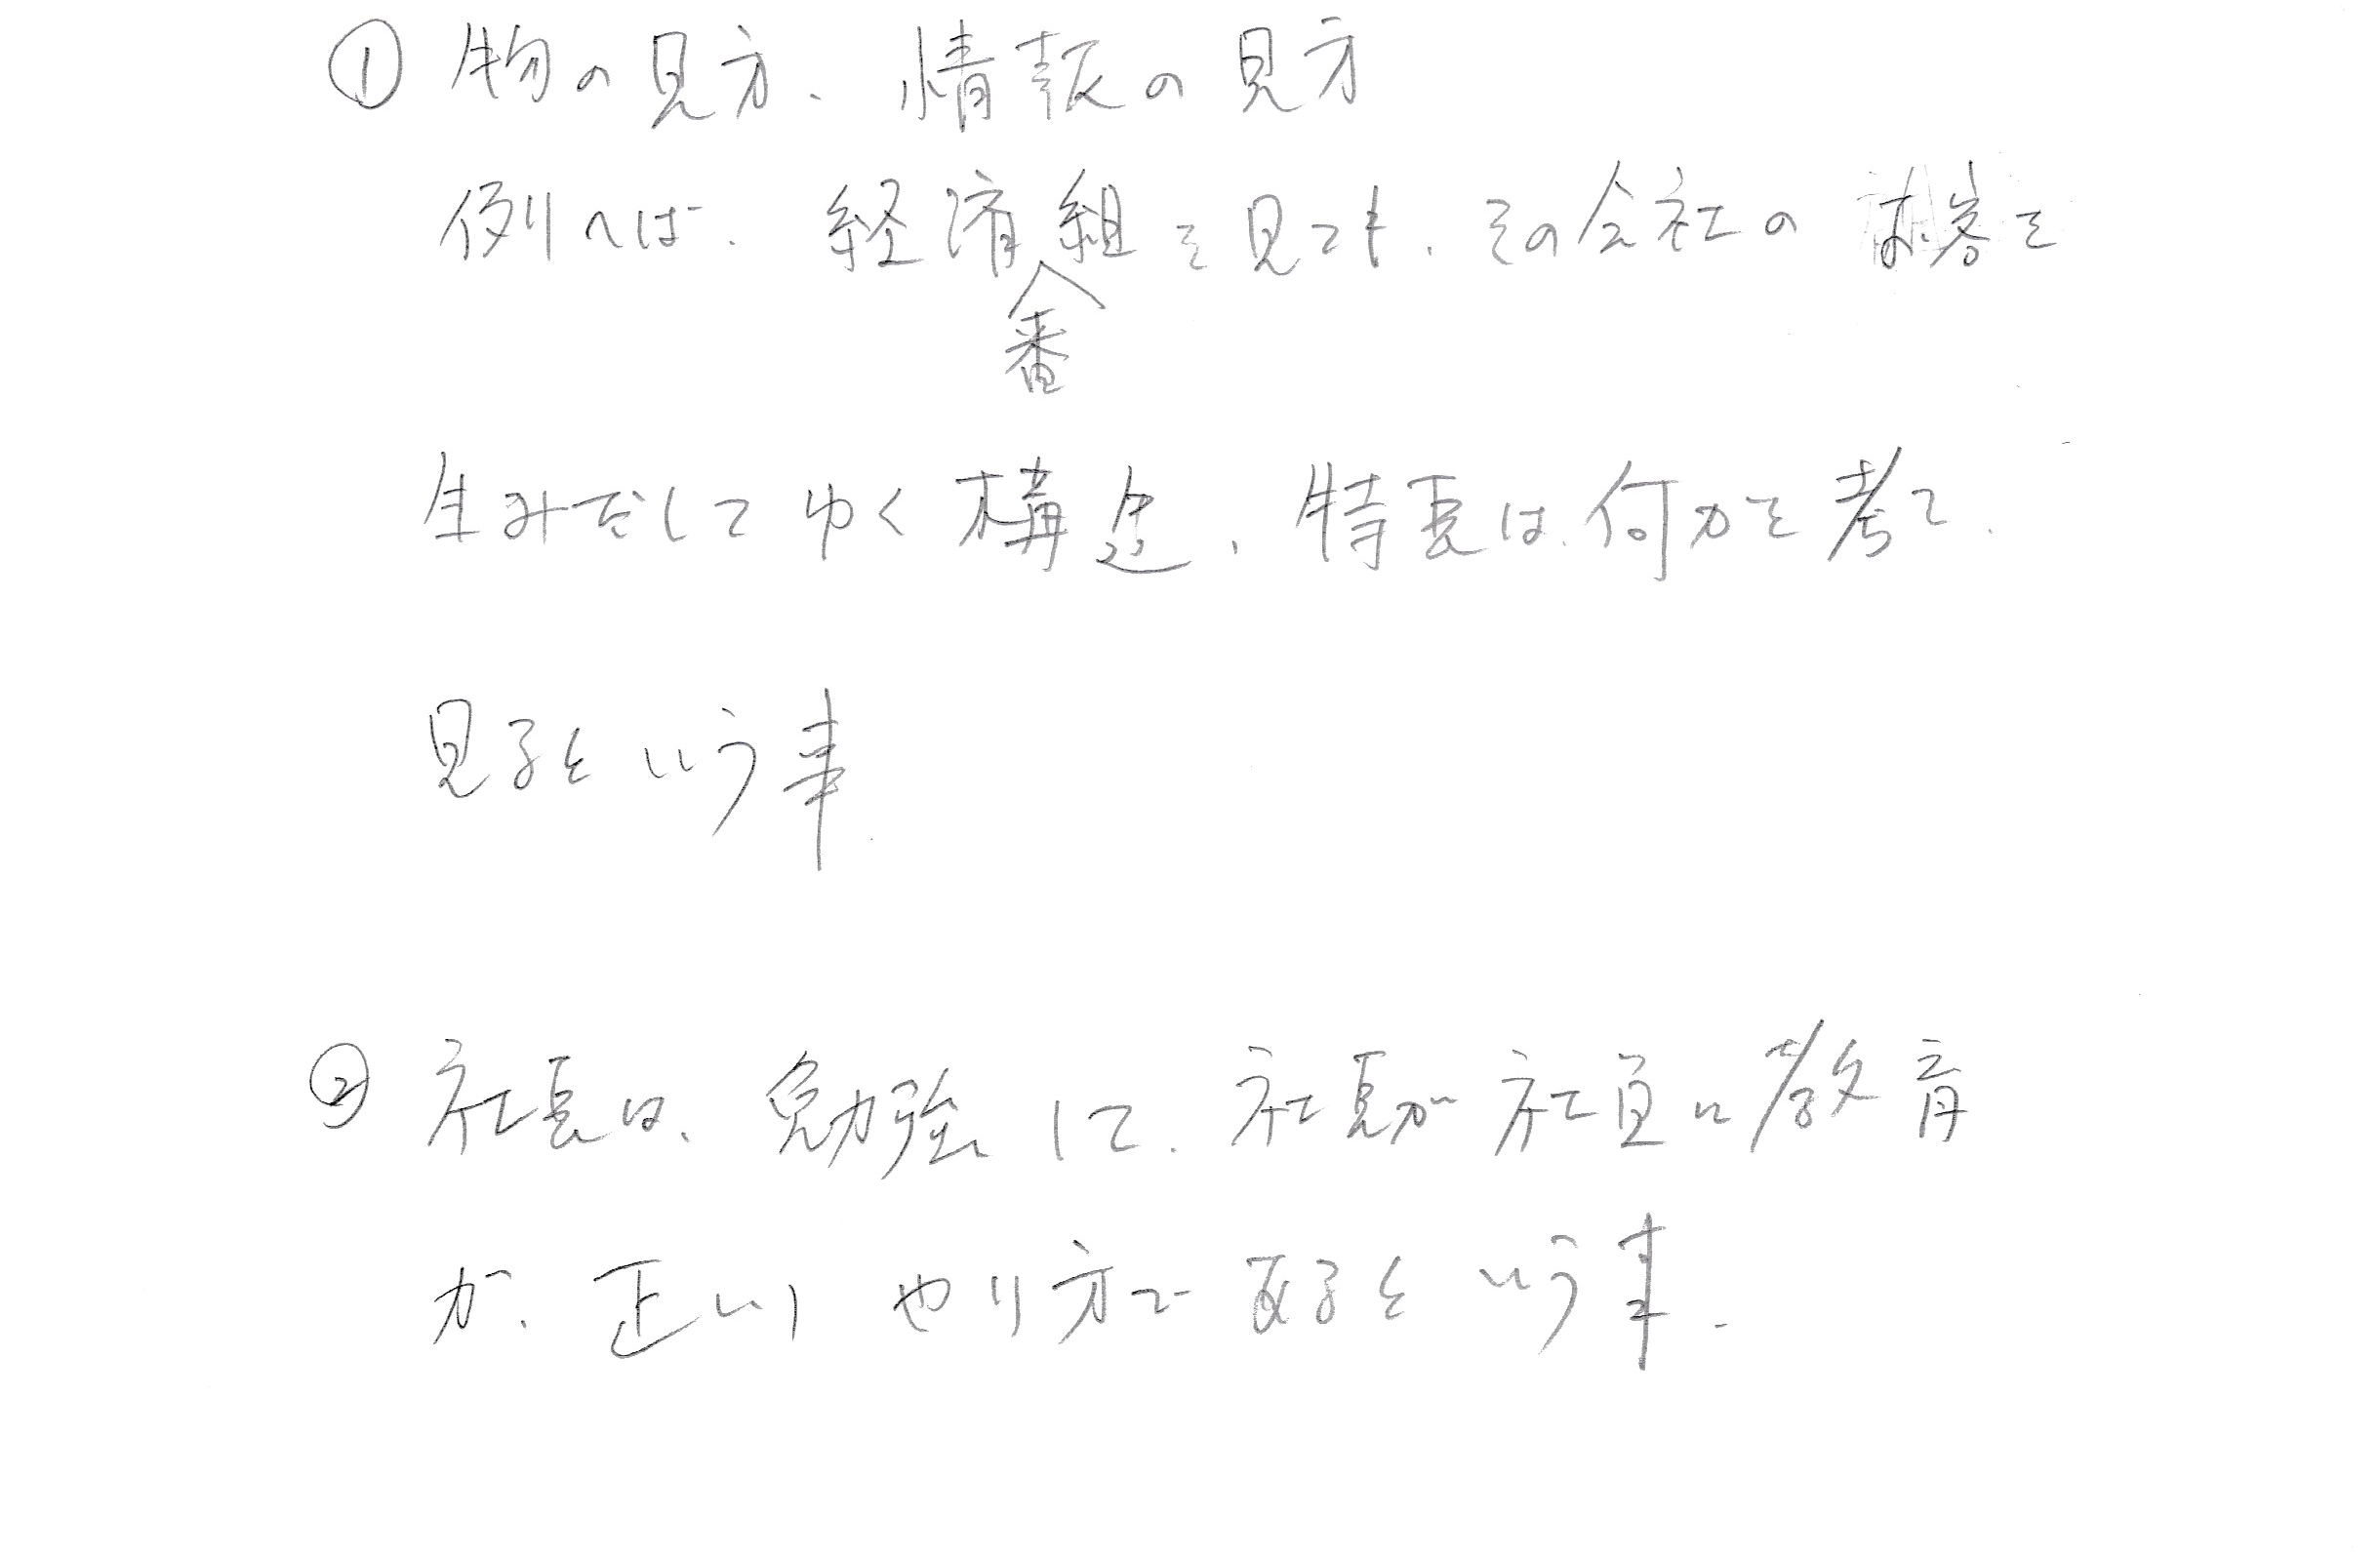 ① 物の見方、情報の見方
例へば、経済番組を見ても、その会社の
生みだしてゆく構造、特長は何かを考て、
見るという事
② 社長は、勉強して、社長が社員に教育
が、正しいやり方で するという事.